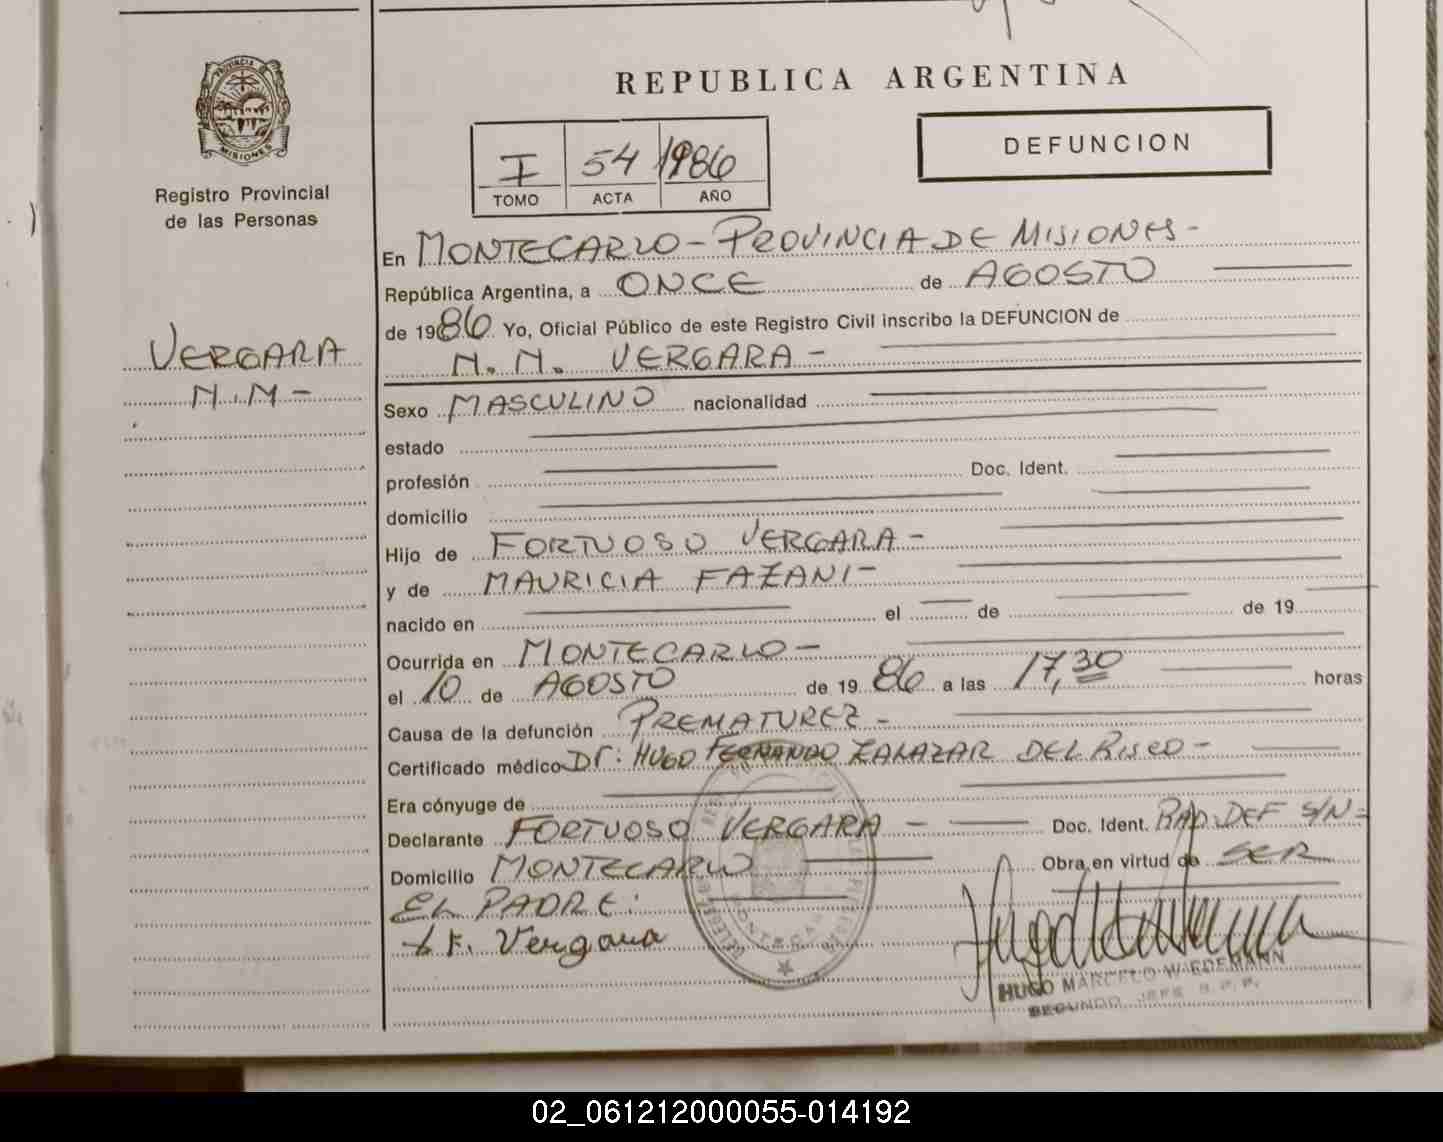 REPUBLICA ARGENTINA
PROVINCIA DE
MISIONES
Registro Provincial
de las Personas
I 54 1986
TOMO ACTA AÑO
DEFUNCION
VERGARA
N.N -
En MONTECARLO - PROVINCIA DE MISIONES -
República Argentina, a ONCE de AGOSTO
de 1986 Yo, Oficial Público de este Registro Civil inscribo la DEFUNCION de
N. N. VERGARA -
Sexo MASCULINO nacionalidad
estado
profesión Doc. Ident.
domicilio
Hijo de FORTUOSO VERGARA -
y de MAURICIA FAZANI -
nacido en el de de 19
Ocurrida en MONTECARLO -
el 10 de AGOSTO de 19 86 a las 17,30 horas
Causa de la defunción PREMATUREZ -
Certificado médico Dr: HUGO FERNANDO ZALAZAR DEL RISCO -
Era cónyuge de
Declarante FORTUOSO VERGARA - Doc. Ident. RAD. DEF S/N -
Domicilio MONTECARLO Obra en virtud de SER
EL PADRE:
F. Vergara
MONTECARLO
HUGO MARCELO WIEDEMANN
SEGUNDO JEFE R.P.P.
02_061212000055-014192